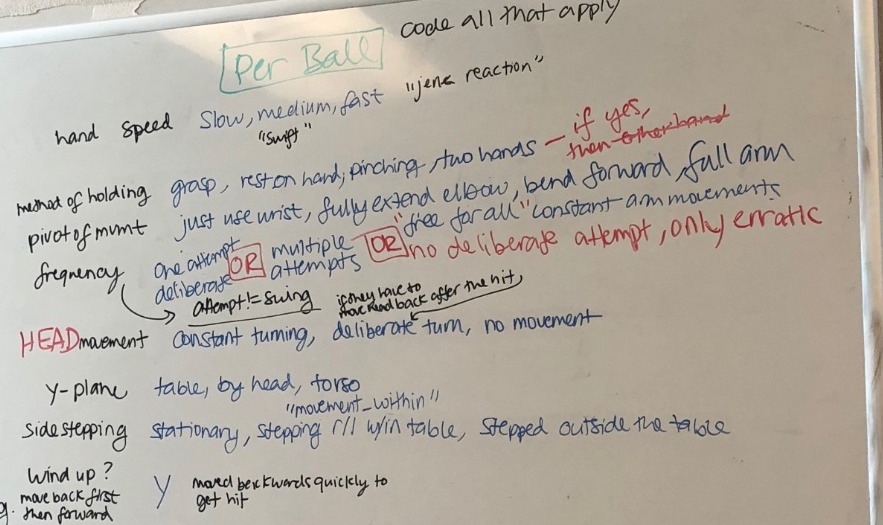 code all that apply
Per Ball
hand speed slow, medium, fast "jerk reaction"
"swift"
method of holding grasp, rest on hand, pinching, two hands – if yes,
then other hand
pivot of mvmt just use wrist, fully extend elbow, bend forward, full arm
"free for all" constant arm movements
frequency one attempt deliberate OR multiple attempts OR no deliberate attempt, only erratic
attempt != swing
if they have to
move head back after the hit,
HEAD movement constant turning, deliberate turn, no movement
y-plane table, by head, torso
"movement_within"
sidestepping stationary, stepping r/l w/in table, stepped outside the table
wind up?
move back first
then forward
Y moved backwards quickly to
get hit